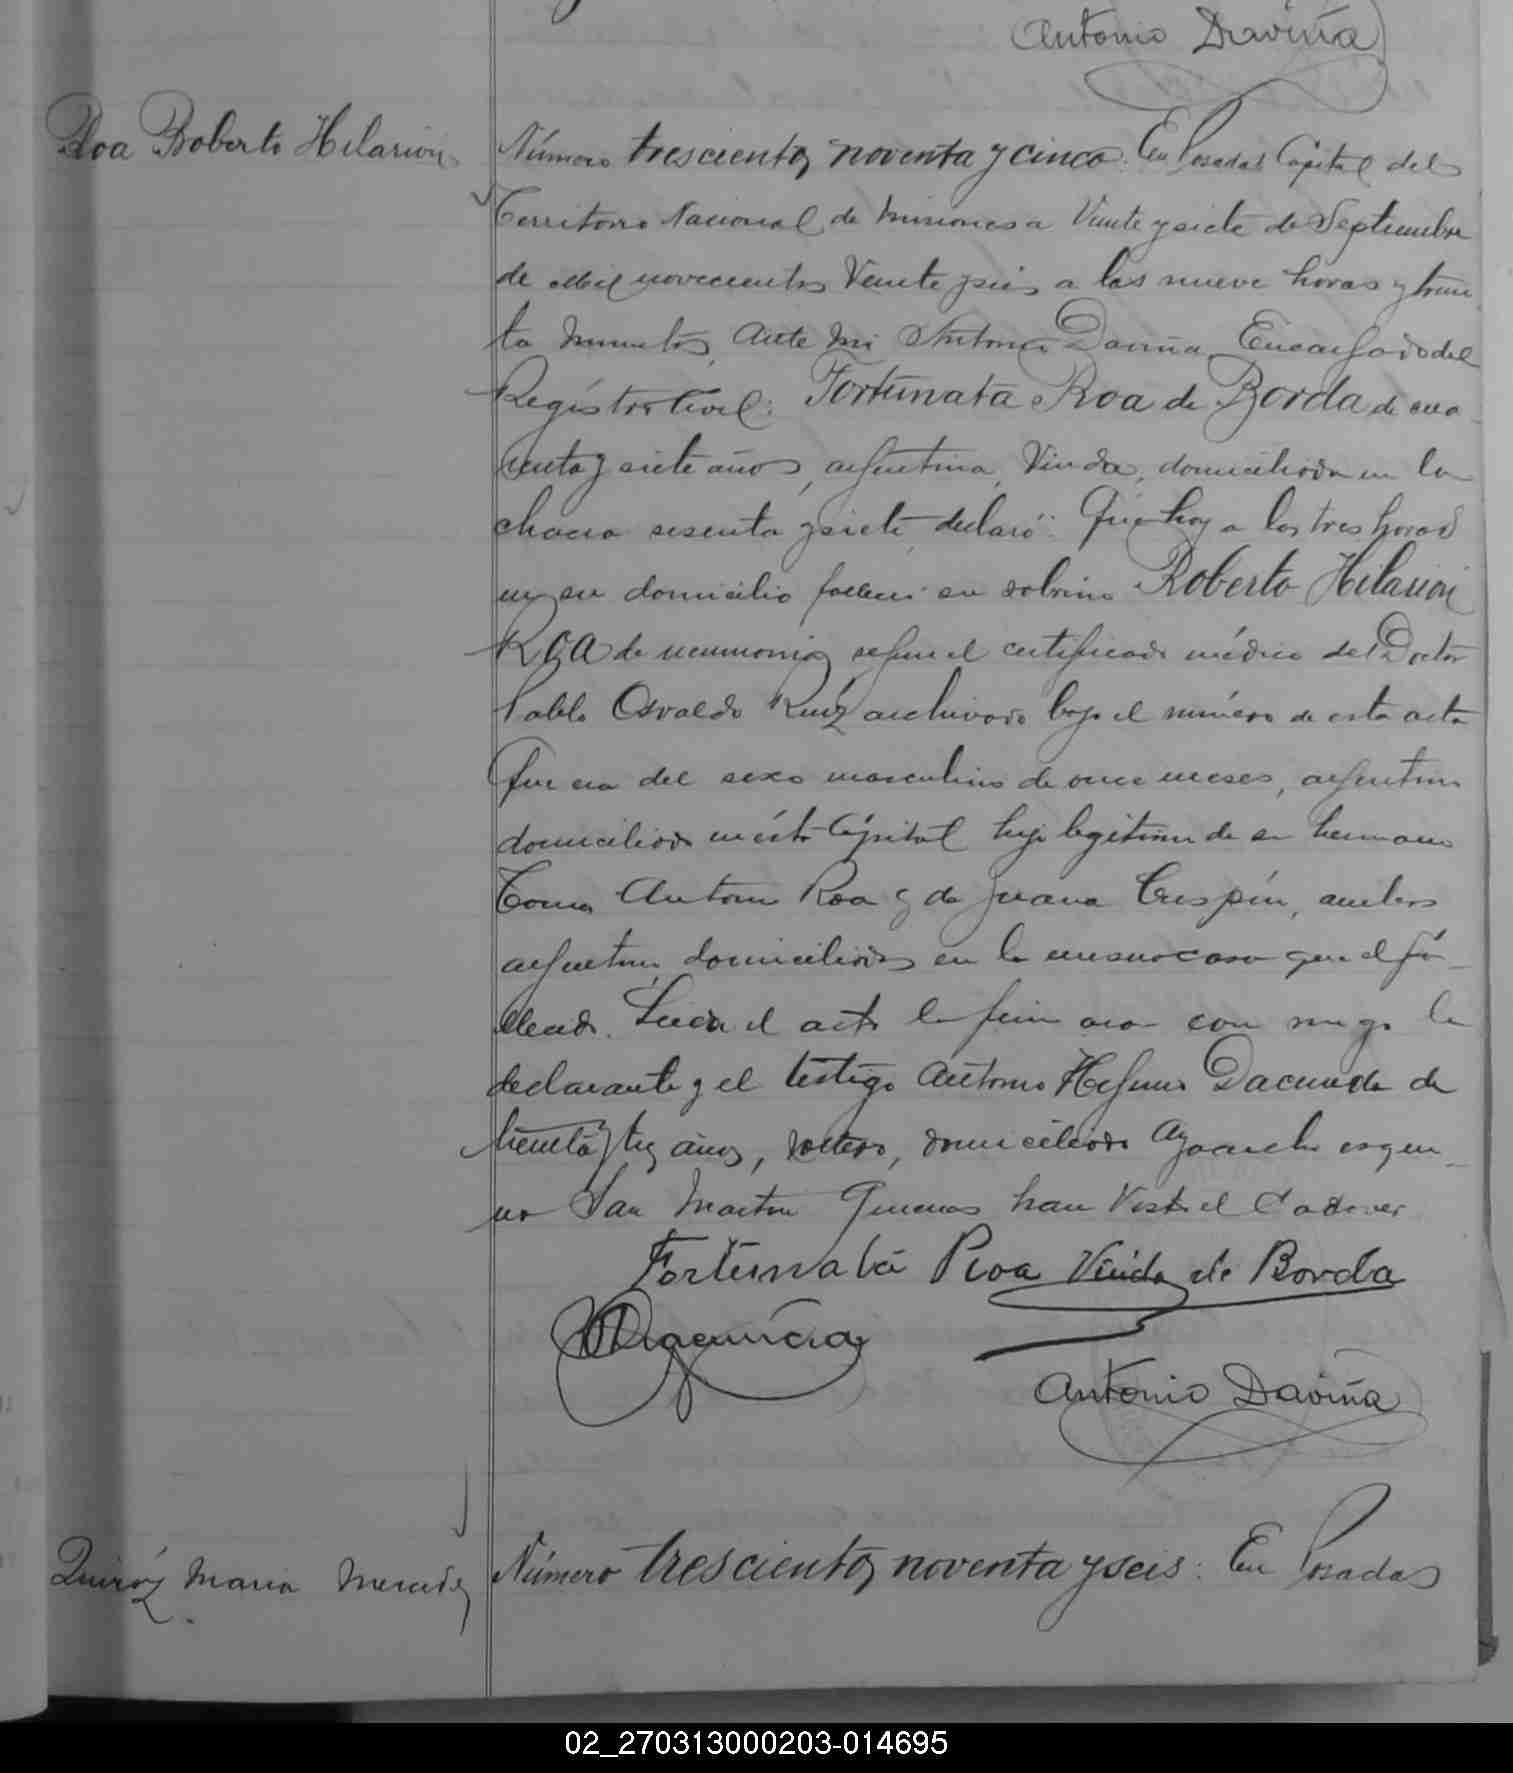 Antonio Daviña
Roa Roberto Hilarion
Número trescientos noventa y cinco: En Posadas Capital del
Territorio Nacional de Misiones a Veinte y siete de Septiembre
de Mil novecientos Veinte y seis a las nueve horas y trein
ta minutos, Ante Mi Antonio Daviña Encargado del
Registro Civil: Fortunata Roa de Borda de cua
renta y siete años, argentina, Viuda, domiciliada en la
chacra sesenta y siete, declaró: Que hoy a las tres horas
en su domicilio falleció su sobrino Roberto Hilarion
Roa de neumonia segun el certificado médico del Doctor
Pablo Osvaldo Ruíz archivado bajo el número de esta acta
Que era del sexo masculino de once meses, argentino
domiciliado en ésta Capital hijo legítimo de su hermano
Tomas Antonio Roa y de Juana Crespín, ambos
argentinos domiciliados en la misma casa que el fa-
llecido. Leida el acta la firmaron con migo la
declarante y el testigo Antonio Dacunda de
treinta y tres años, soltero, domiciliado Ayacucho esqui-
na San Martin Quienes han Visto el Cadaver
Fortunata Roa Viuda de Borda
Antonio Daviña
Quiróz Maria Mercedes
Número trescientos noventa y seis: En Posadas
02_270313000203-014695